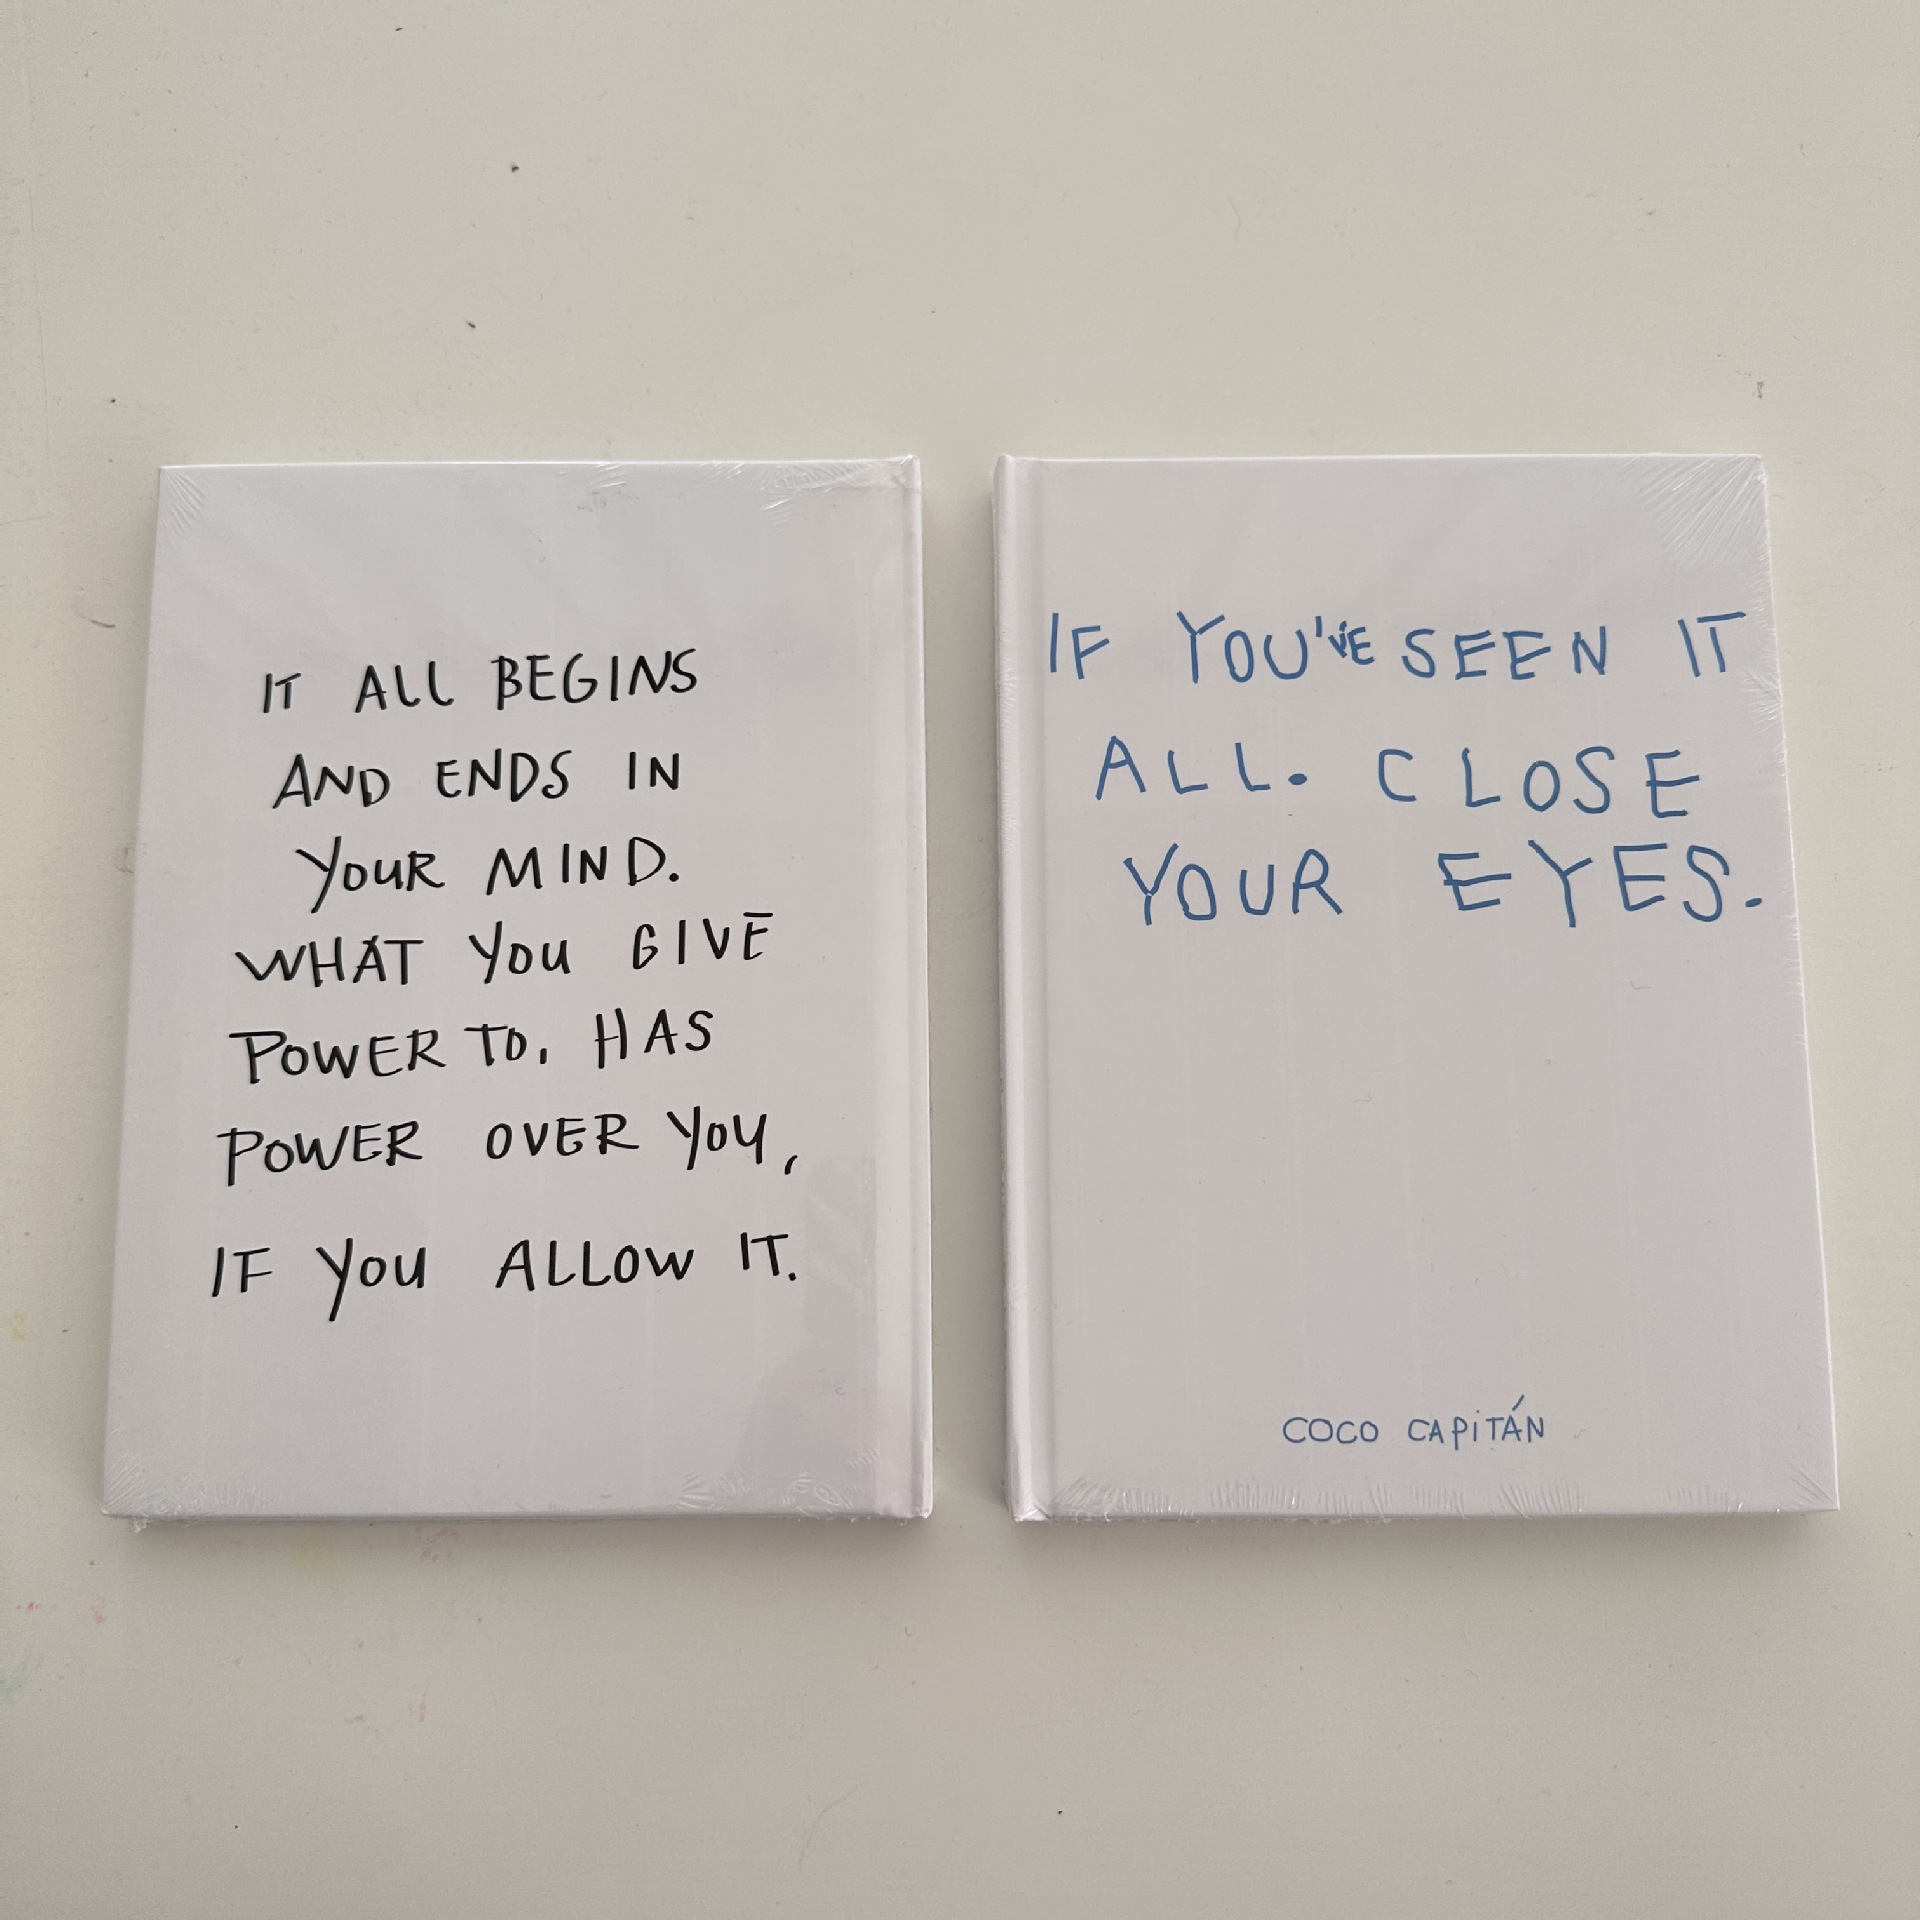 IT ALL BEGINS
AND ENDS IN
YOUR MIND.
WHAT YOU GIVE
POWER TO, HAS
POWER OVER YOU,
IF YOU ALLOW IT.
IF YOU'VE SEEN IT
ALL. CLOSE
YOUR EYES.
COCO CAPITÁN